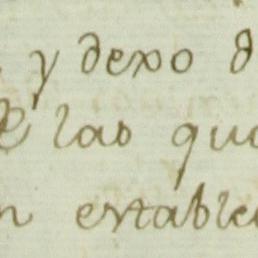 y dexo d
e las qua
n estable